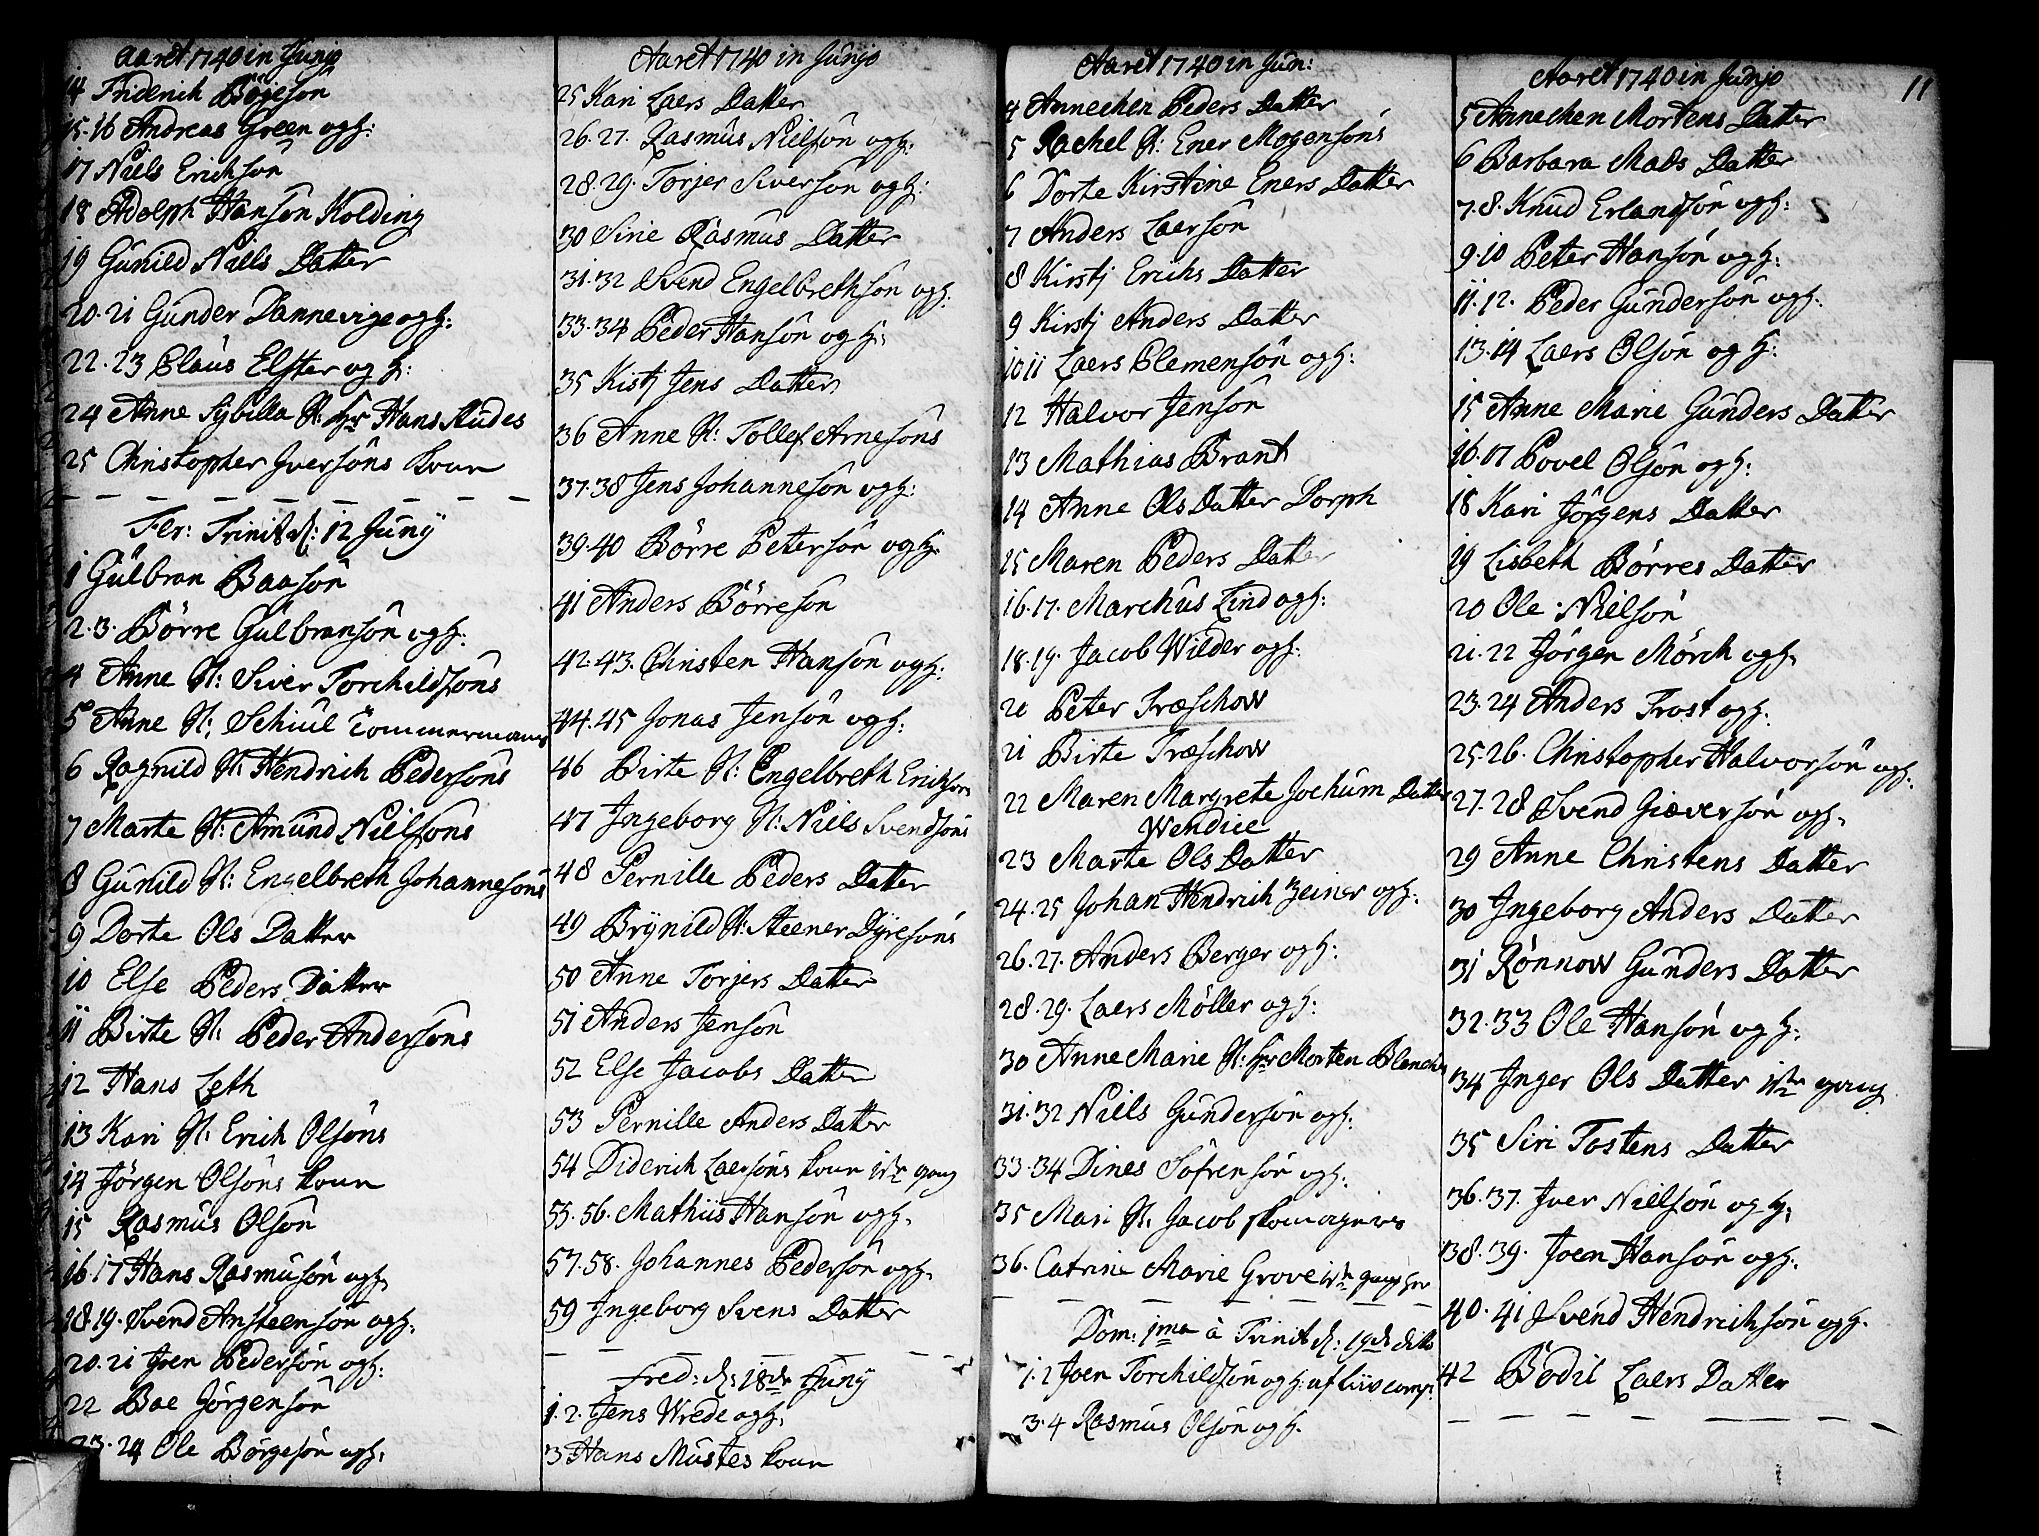 Aaret 1740 in Junjo
14 Friderich Bögesön
15.16 Andreas Green ogh:
17 Niels Erichsön
18 Adolph Hansön Kolding
19 Gunild Niels Datter
20.21 Gunder Dannevige ogh:
22.23 Claus Elster og h:
24 Anne Sybilla N: Hr Hans Studes
25 Christopher Jversöns koun
Fer: Trinit d: 12 Junÿ
1 Gulbran Baasön
2.3. Börre Gulbransön ogh:
4 Anne N: Siver Torchildsöns
5 Anne N: Schiul Tommermans
6 Ragnild N: Hendrich Pedersöns
7 Marte N: Amund Nielsöns
8 Gunild N: Engelbreth Johannesöns
9 Dorte Ols Datter
10 Else Peders Datter
11 Birte N: Peder Andersöns
12 Hans Leth
13 Kari N: Erich Olsöns
14 Jörgen Olsöns koun
15 Rasmus Olsön
16.17 Hans Rasmusön ogh.
18.19. Svend Ansteensön ogh.
20.21 Joen Pedersön ogh:
22 Boe Jörgensön
23.24 Ole Börgesön ogh.
Aaret 1740 in Junjo
25 Kari Laers Datter
26.27. Rasmus Nielsön ogh:
28.29. Torjer Siversön ogh:
30 Sirie Rasmus Datter
31.32 Svend Engelbrethsön ogh:
33.34 Peder Hansön og h:
35 Kistj Jens Datter
36 Anne N: Tollef Arnesöns
37.38 Jens Johannesön ogh:
39.40 Börre Petersön ogh:
41 Anders Börresön
42.43. Christen Hansön ogh:
44.45 Jonas Jensön ogh:
46 Birte N: Engelbreth Erichsön
47 Jngeborg N: Niels Svendsöns
48 Pernille Peders Datter
49 Brynild N: Steener Dyresöns
50 Anne Torjers Datter
51 Anders Jensön
52 Else Jacobs Datter
53 Pernille Anders Datter
54 Diderich Laersöns koun 1ste gang
55.56. Mathiis Hansön ogh.
57.58. Johannes Pedersön ogh.
59 Jngeborg Svens Datter
Fred: d: 18de Junÿ
1.2. Jens Wrede ogh.
3 Hans Mustes koun
Aaret 1740 in Jun:
4 Annechen Peders Datter
5 Rachel N: Ener Mogensöns
6 Dorte Kirstine Eners Datter
7 Anders Laersön
8 Kirstj Erichs Datter
9 Kirstj Anders Datter
10 11 Laers Clemensön ogh:
12 Halvor Jensön
13 Mathias Brant
14 Anne Ols Datter Dorph
15 Maren Peders Datter
16.17. Marchus Lind ogh:
18.19. Jacob Wilder ogh:
20 Peter Træschow
21 Birte Træschow
22 Maren Margrete Jochum Datter
Wendice
23 Marte Ols Datter
24.25 Johan Hendrich Zeiner ogh:
26.27. Anders Berger ogh:
28.29. Laers Möller ogh:
30 Anne Marie N: Hr Morten Blench
31.32 Niels Gundersön ogh:
33.34 Dines Sofrensön ogh.
35 Mari N: Jacob skomagers
36. Catrine Marie Grove 1ste gang
Dom: 1ma à Trinit d: 19de dito
1.2 Joen Torchildsön ogh: af Livcomp:
3.4 Rasmus Olsön ogh.
Aaret 1740 in Junjo
11
5 Annechen Mortens Datter
6 Barbara Mads Datter
7.8. Knud Erlandsön ogh:
9.10 Peter Hansön ogh:
11.12. Peder Gundersön ogh:
13.14 Laers Olsön og h:
15 Anne Marie Gunders Datter
16.17 Povel Olsön ogh:
18 Kari Jörgens Datter
19 Lisbeth Börres Datter
20 Ole Nielsön
21.22 Jörgen Mörch ogh.
23.24 Anders Frost ogh.
25.26. Christopher Halvorsön ogh.
27.28 Svend Giæversön ogh.
29 Anne Christens Datter
30 Jngeborg Anders Datter
31 Rönnow Gunders Datter
32.33 Ole Hansön og h.
34 Jnger Ols Datter 1ste gang
35 Siri Tostens Datter
36.37. Jver Nielsön og h.
38.39. Joen Hansön ogh.
40.41 Svend Hendrichsön ogh.
42 Bodil Laers Datter